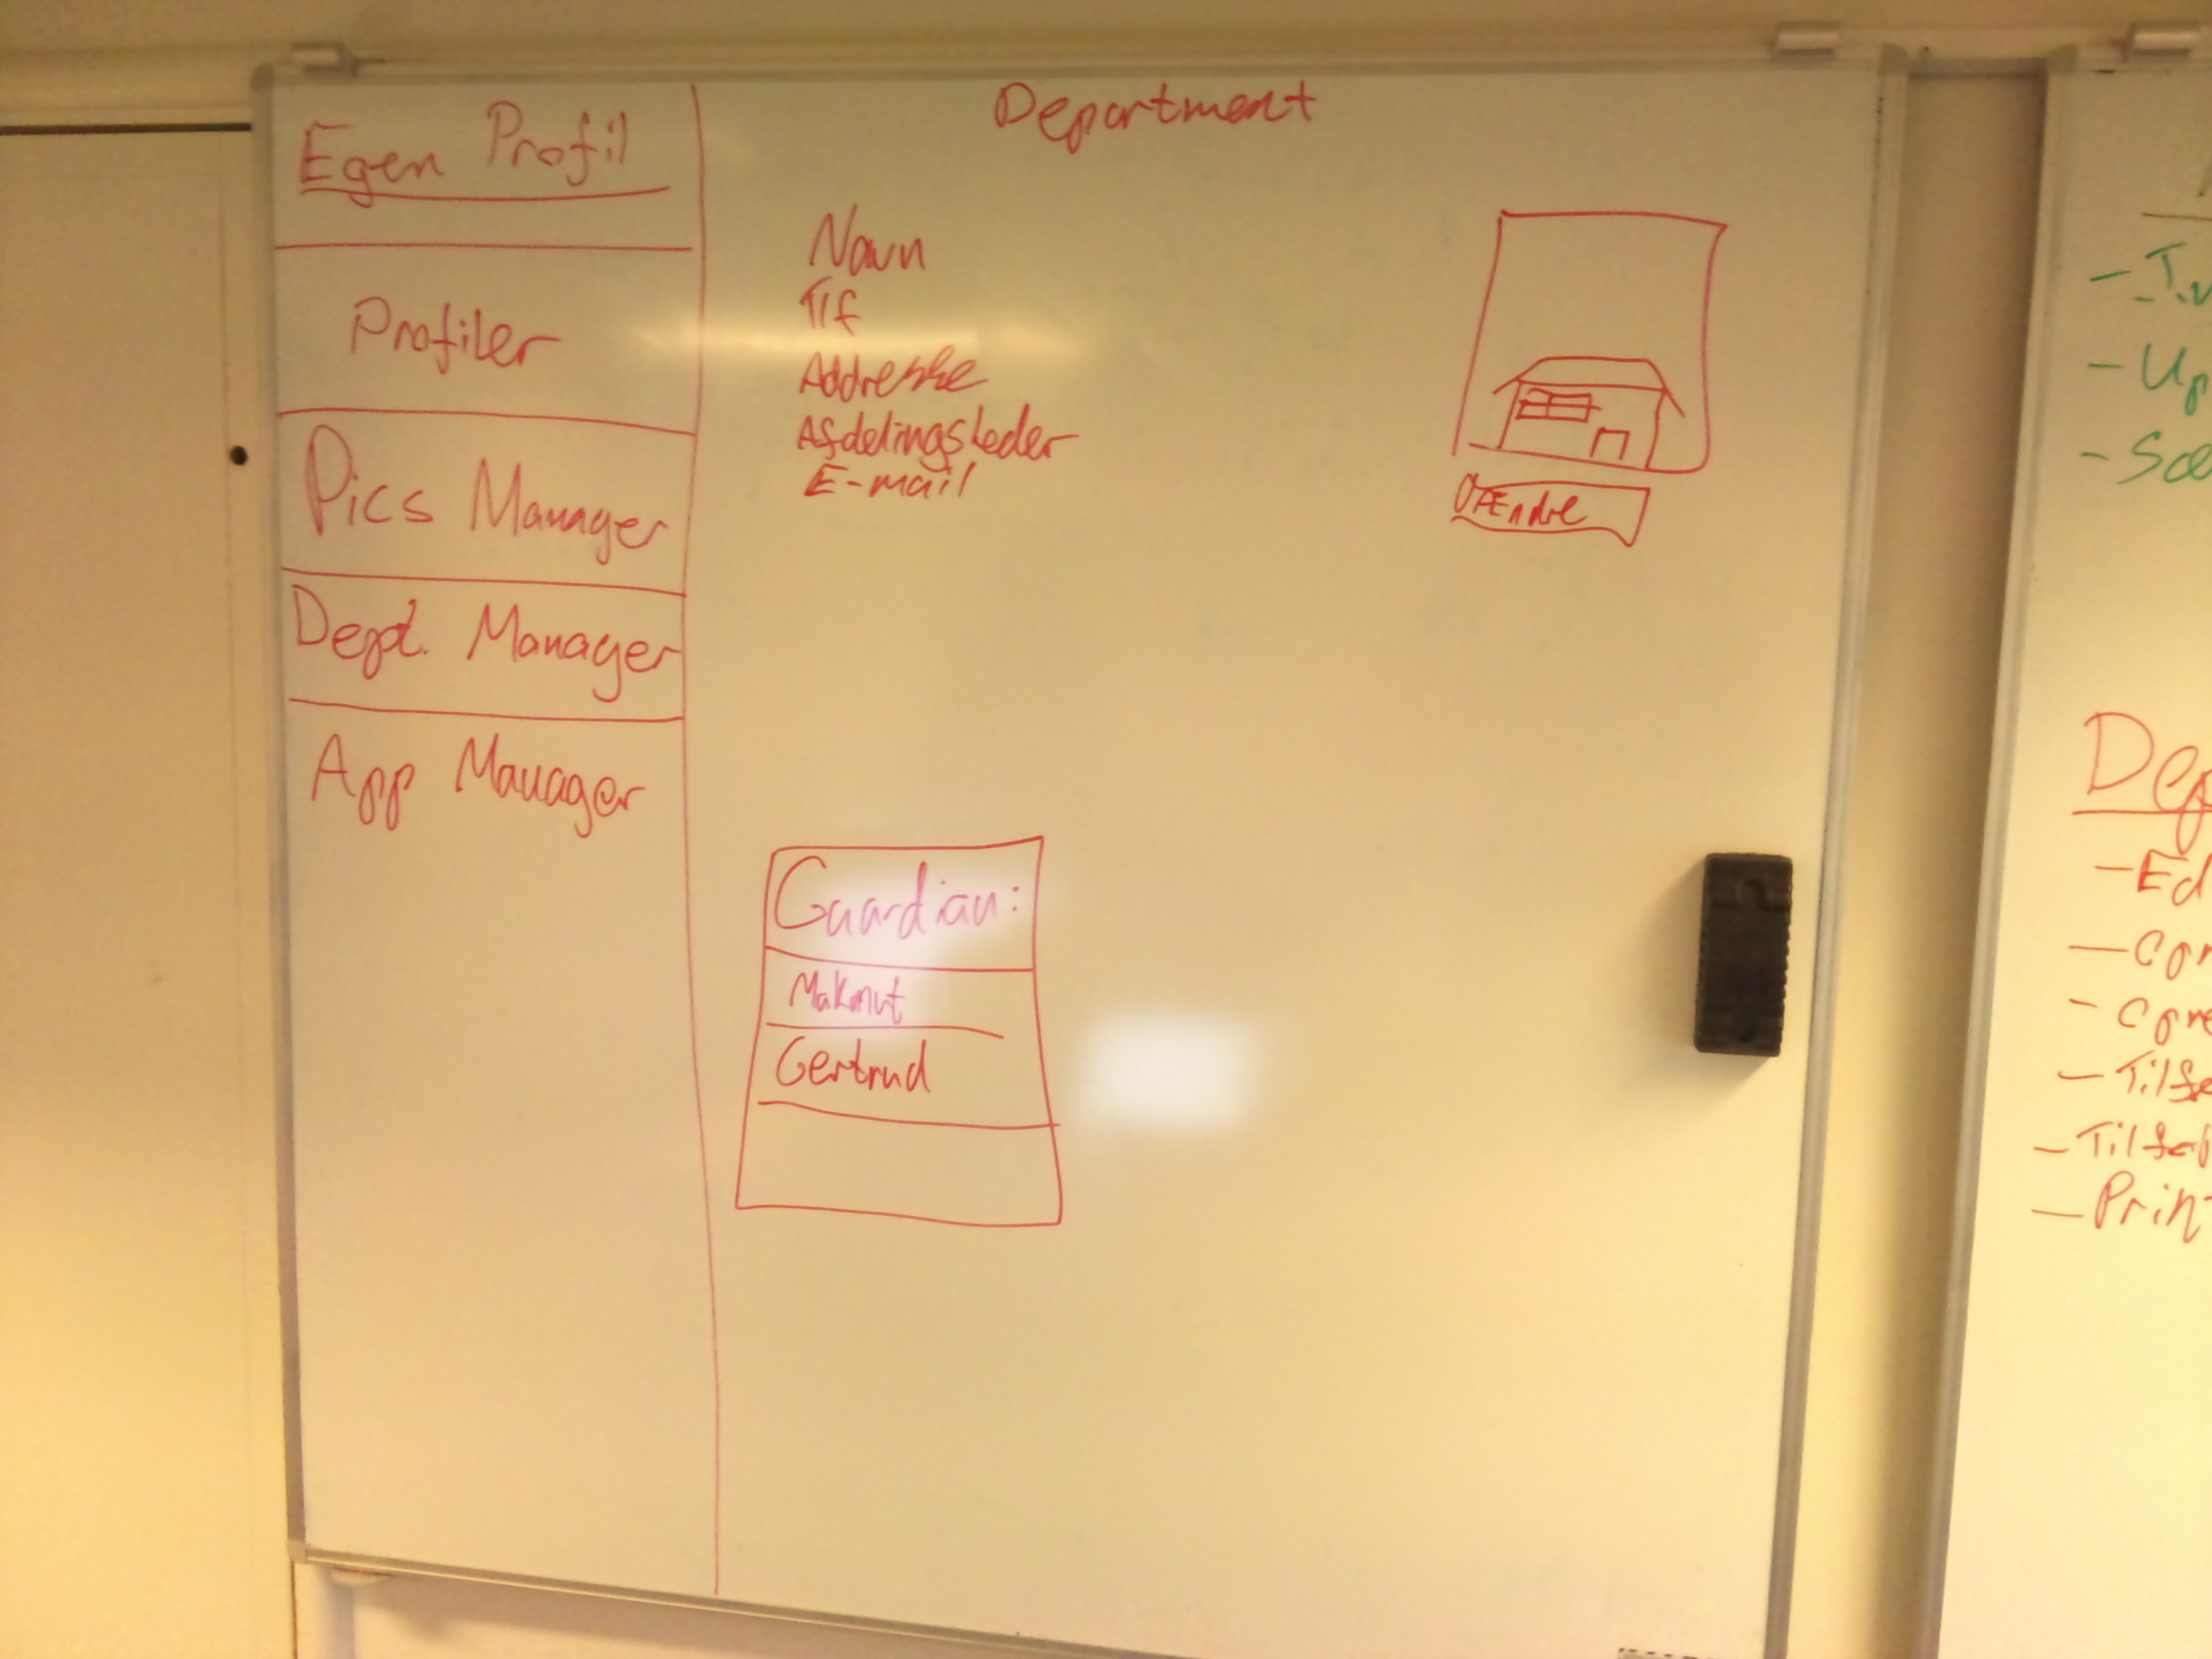 Egen Profil
Profiler
Pics Manager
Dept. Manager
App Manager
Department
Navn
Tlf
Addresse
Afdelingsleder
E-mail
Ændre
Guardian:
Makmut
Gertrud
- Up
Dep
- Ed
- Print